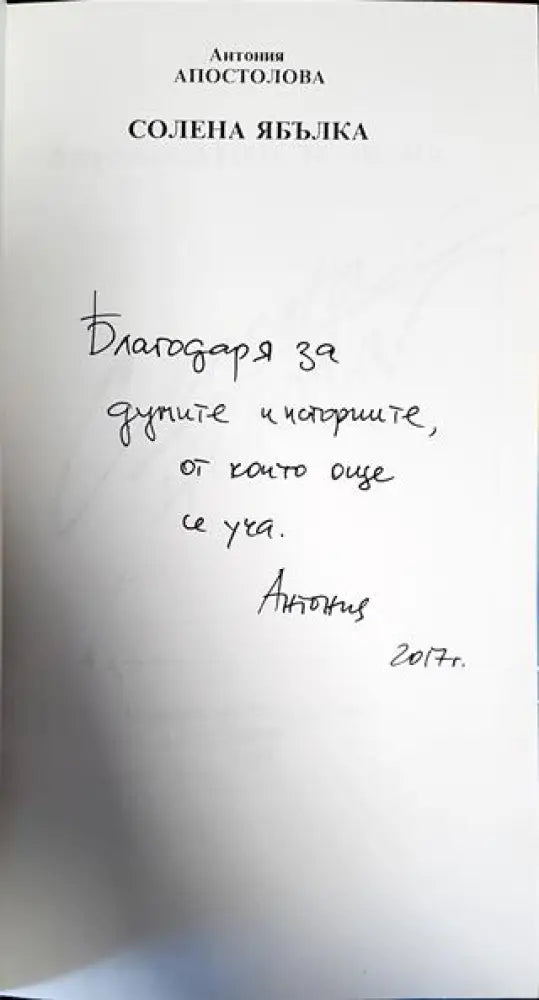 Антония
АПОСТОЛОВА
СОЛЕНА ЯБЪЛКА
Благодаря за
думите и историите,
от които още
се уча.
Антония
2017г.